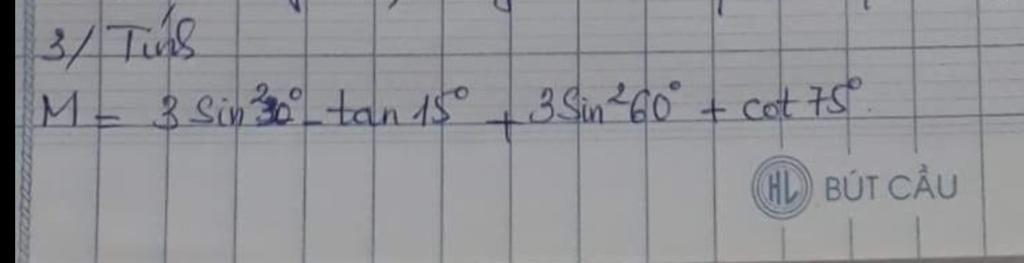 3/ Tính
M = 3 Sin²30° - tan 15° + 3Sin²60° + cot 75°.
HL BÚT CẦU